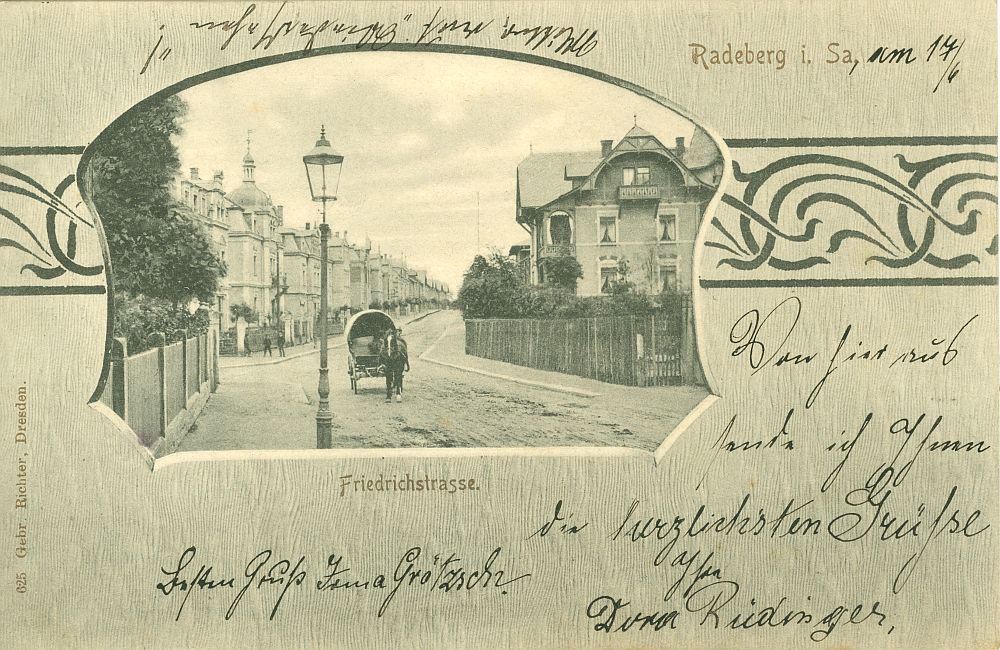 Radeberg i. Sa, am 17/6
Von hier aus
sende ich Ihnen
die herzlichsten Grüße
Ihre
Dora Rüdinger,
Friedrichstrasse.
Besten Gruß Irma Grötzsch.
625 Gebr Richter, Dresden.